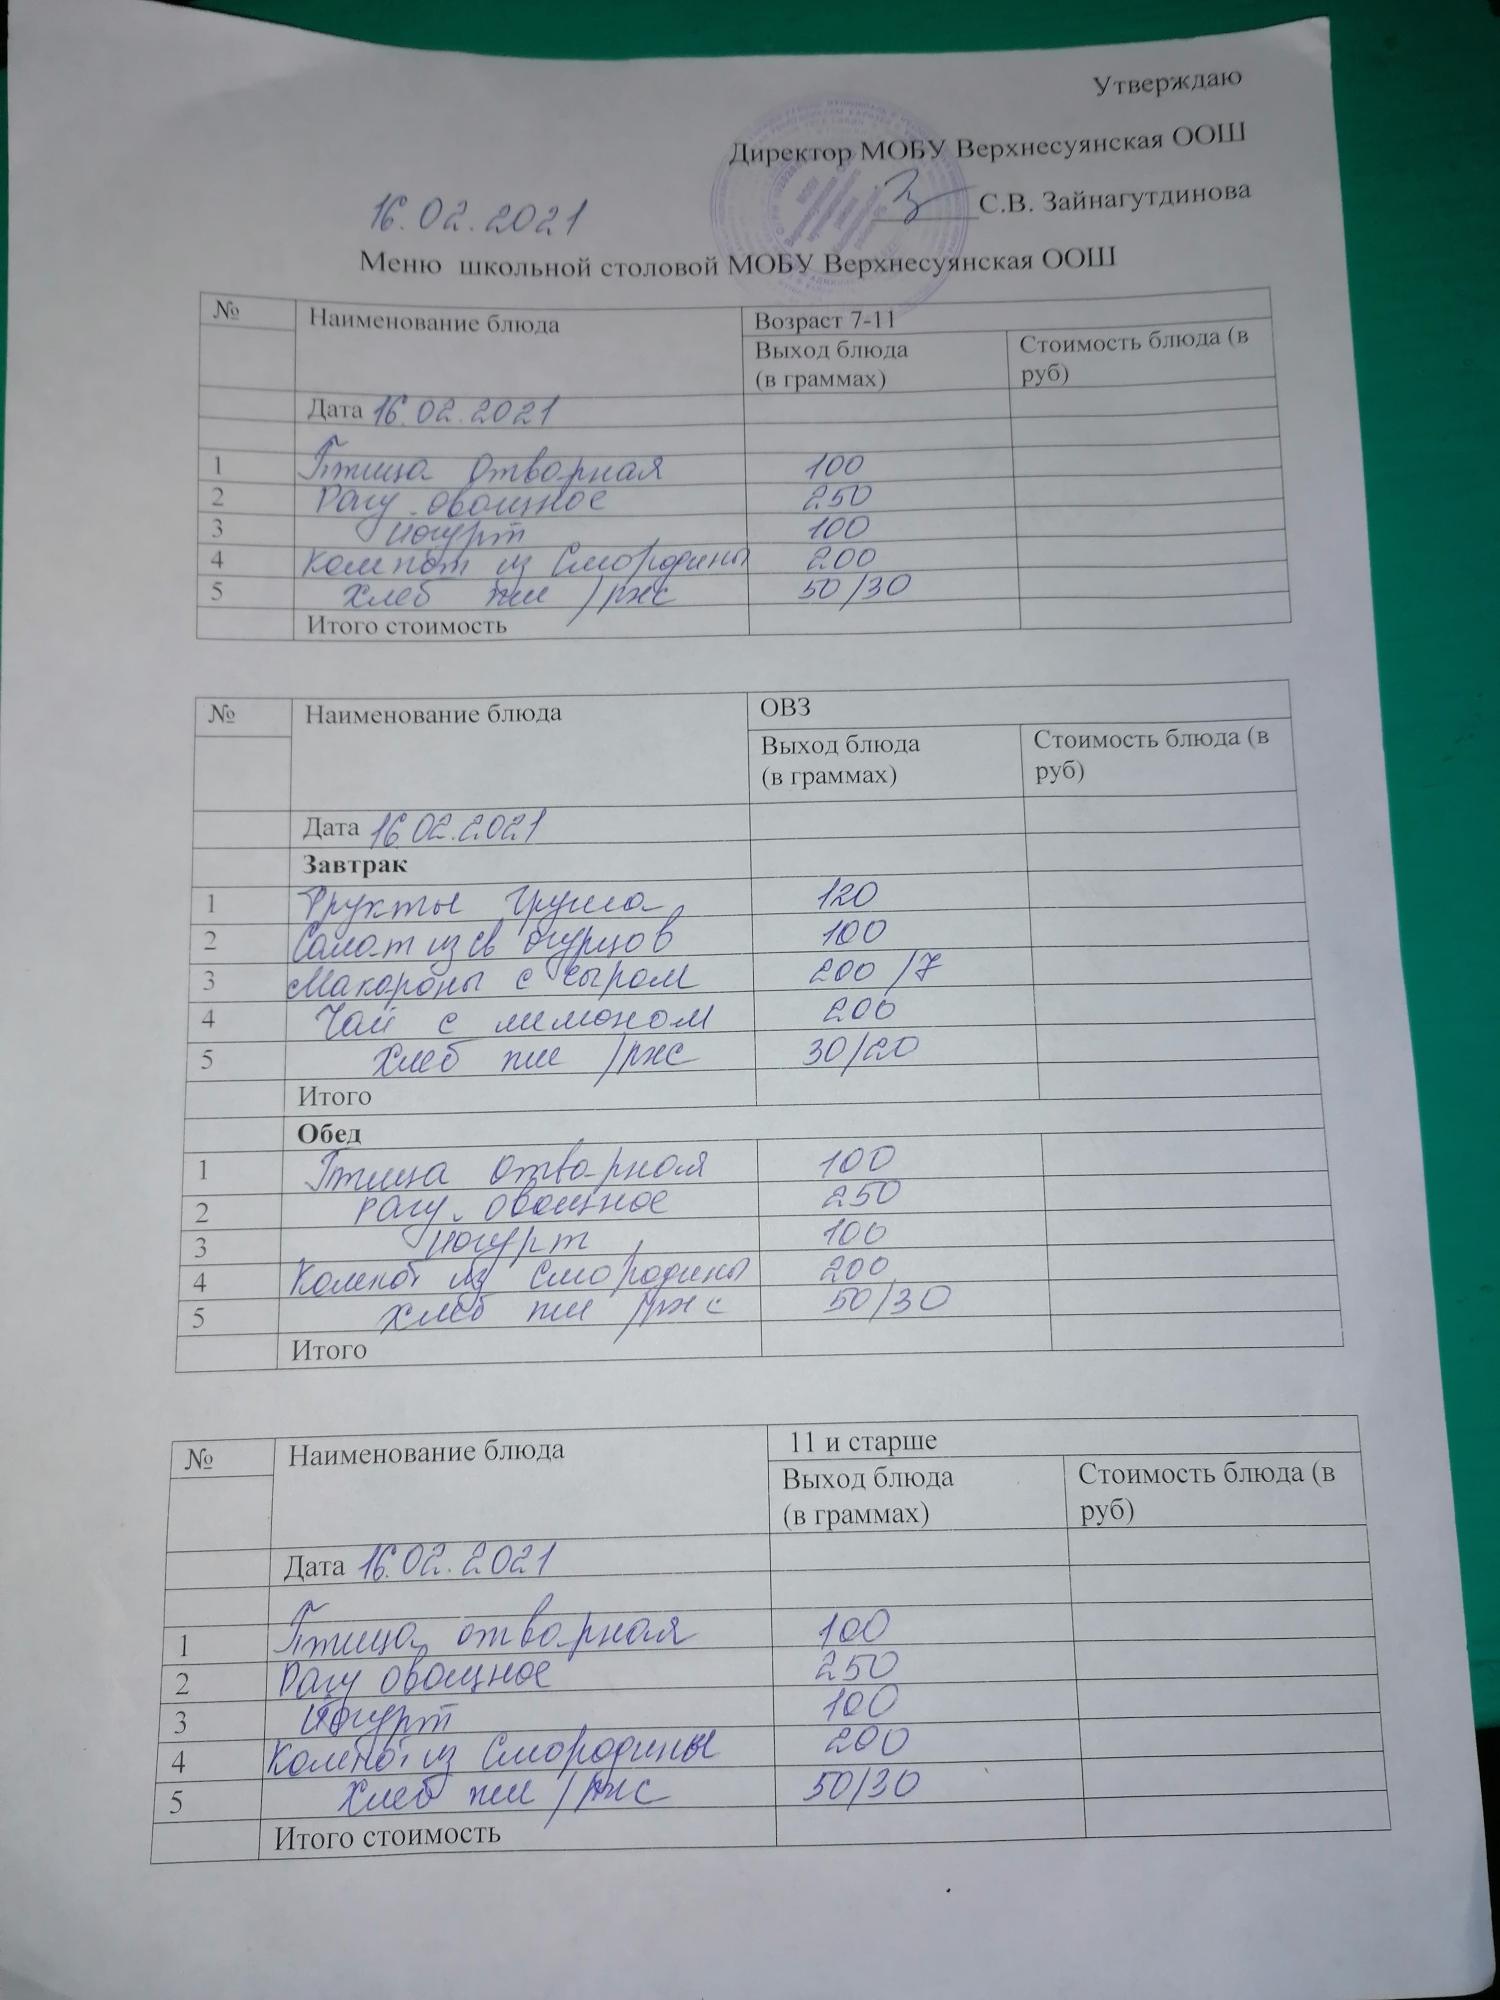 Утверждаю
Директор МОБУ Верхнесуянская ООШ
С.В. Зайнагутдинова
16.02.2021
Меню школьной столовой МОБУ Верхнесуянская ООШ
№ Наименование блюда Возраст 7-11
Выход блюда (в граммах) Стоимость блюда (в руб)
Дата 16.02.2021
1 Птица отварная 100
2 Рагу овощное 250
3 Йогурт 100
4 Компот из Смородины 200
5 Хлеб пш /ржс 50/30
Итого стоимость
№ Наименование блюда ОВЗ
Выход блюда (в граммах) Стоимость блюда (в руб)
Дата 16.02.2021
Завтрак
1 Фрукты Груша 120
2 Салат из св огурцов 100
3 Макароны с сыром 200/7
4 Чай с лимоном 200
5 Хлеб пш /ржс 30/20
Итого
Обед
1 Птица отварная 100
2 Рагу овощное 250
3 Йогурт 100
4 Компот из Смородины 200
5 Хлеб пш /ржс 50/30
Итого
№ Наименование блюда 11 и старше
Выход блюда (в граммах) Стоимость блюда (в руб)
Дата 16.02.2021
1 Птица отварная 100
2 Рагу овощное 250
3 Йогурт 100
4 Компот из Смородины 200
5 Хлеб пш /ржс 50/30
Итого стоимость